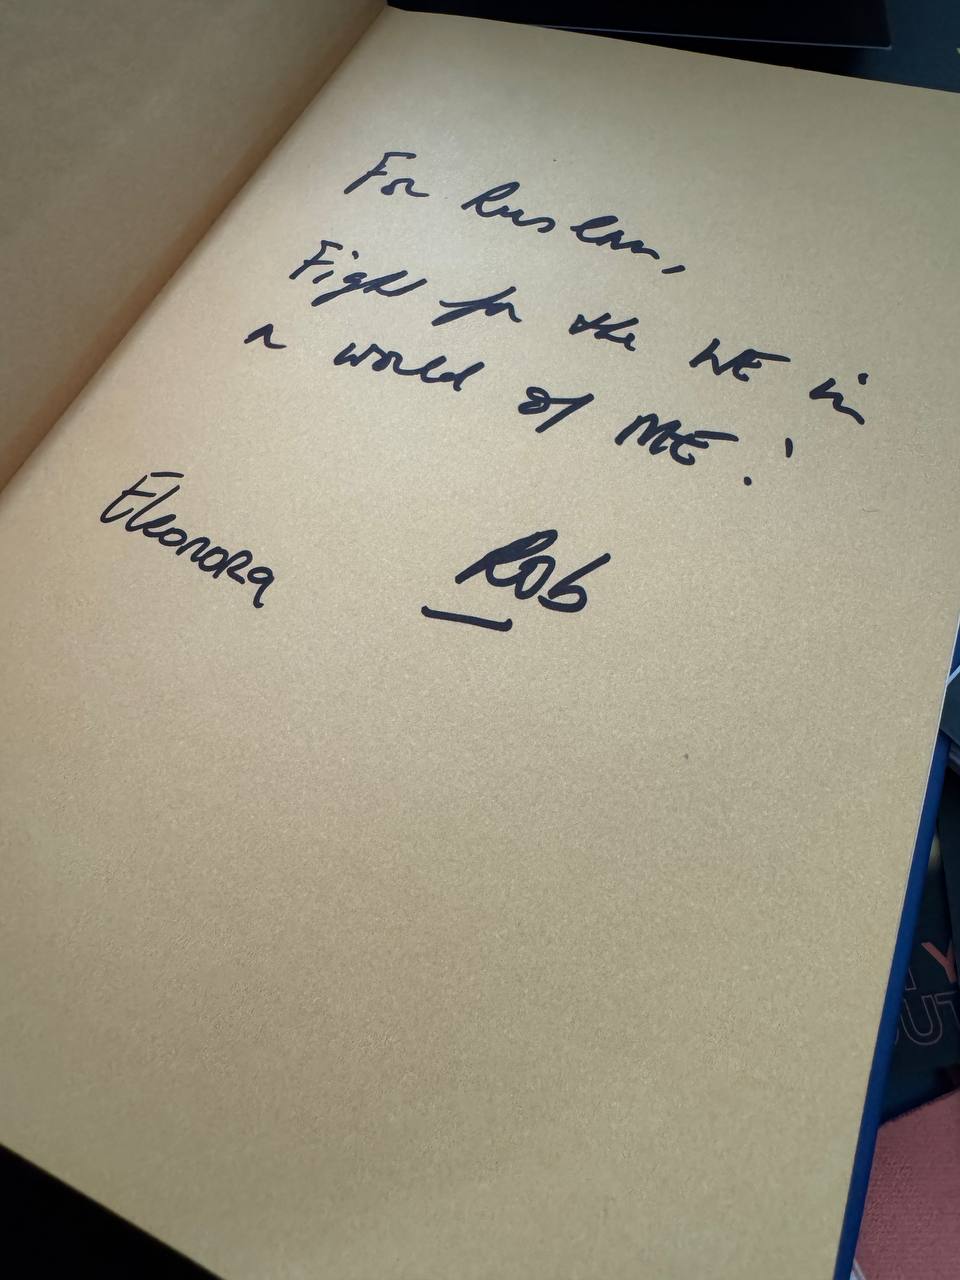 For Ruslan,
Fight for the WE in
a world of ME!
Eleonora
Rob
Y
UT